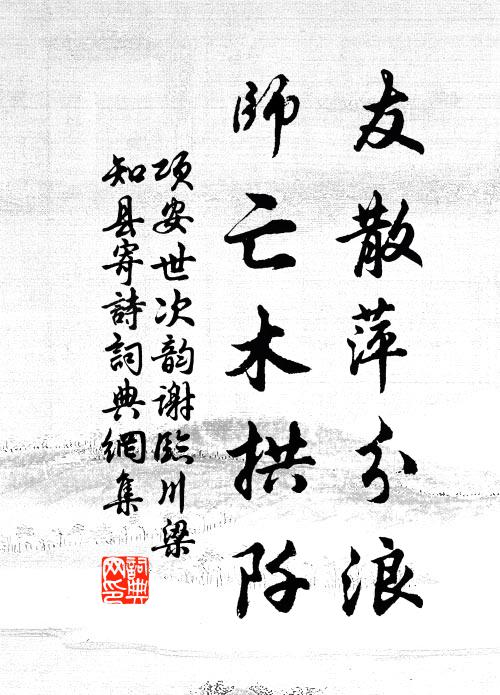 友散萍分浪
師亡木拱阡
項安世次韵謝臨川梁
知县寄詩詞典網集
詞典
网印